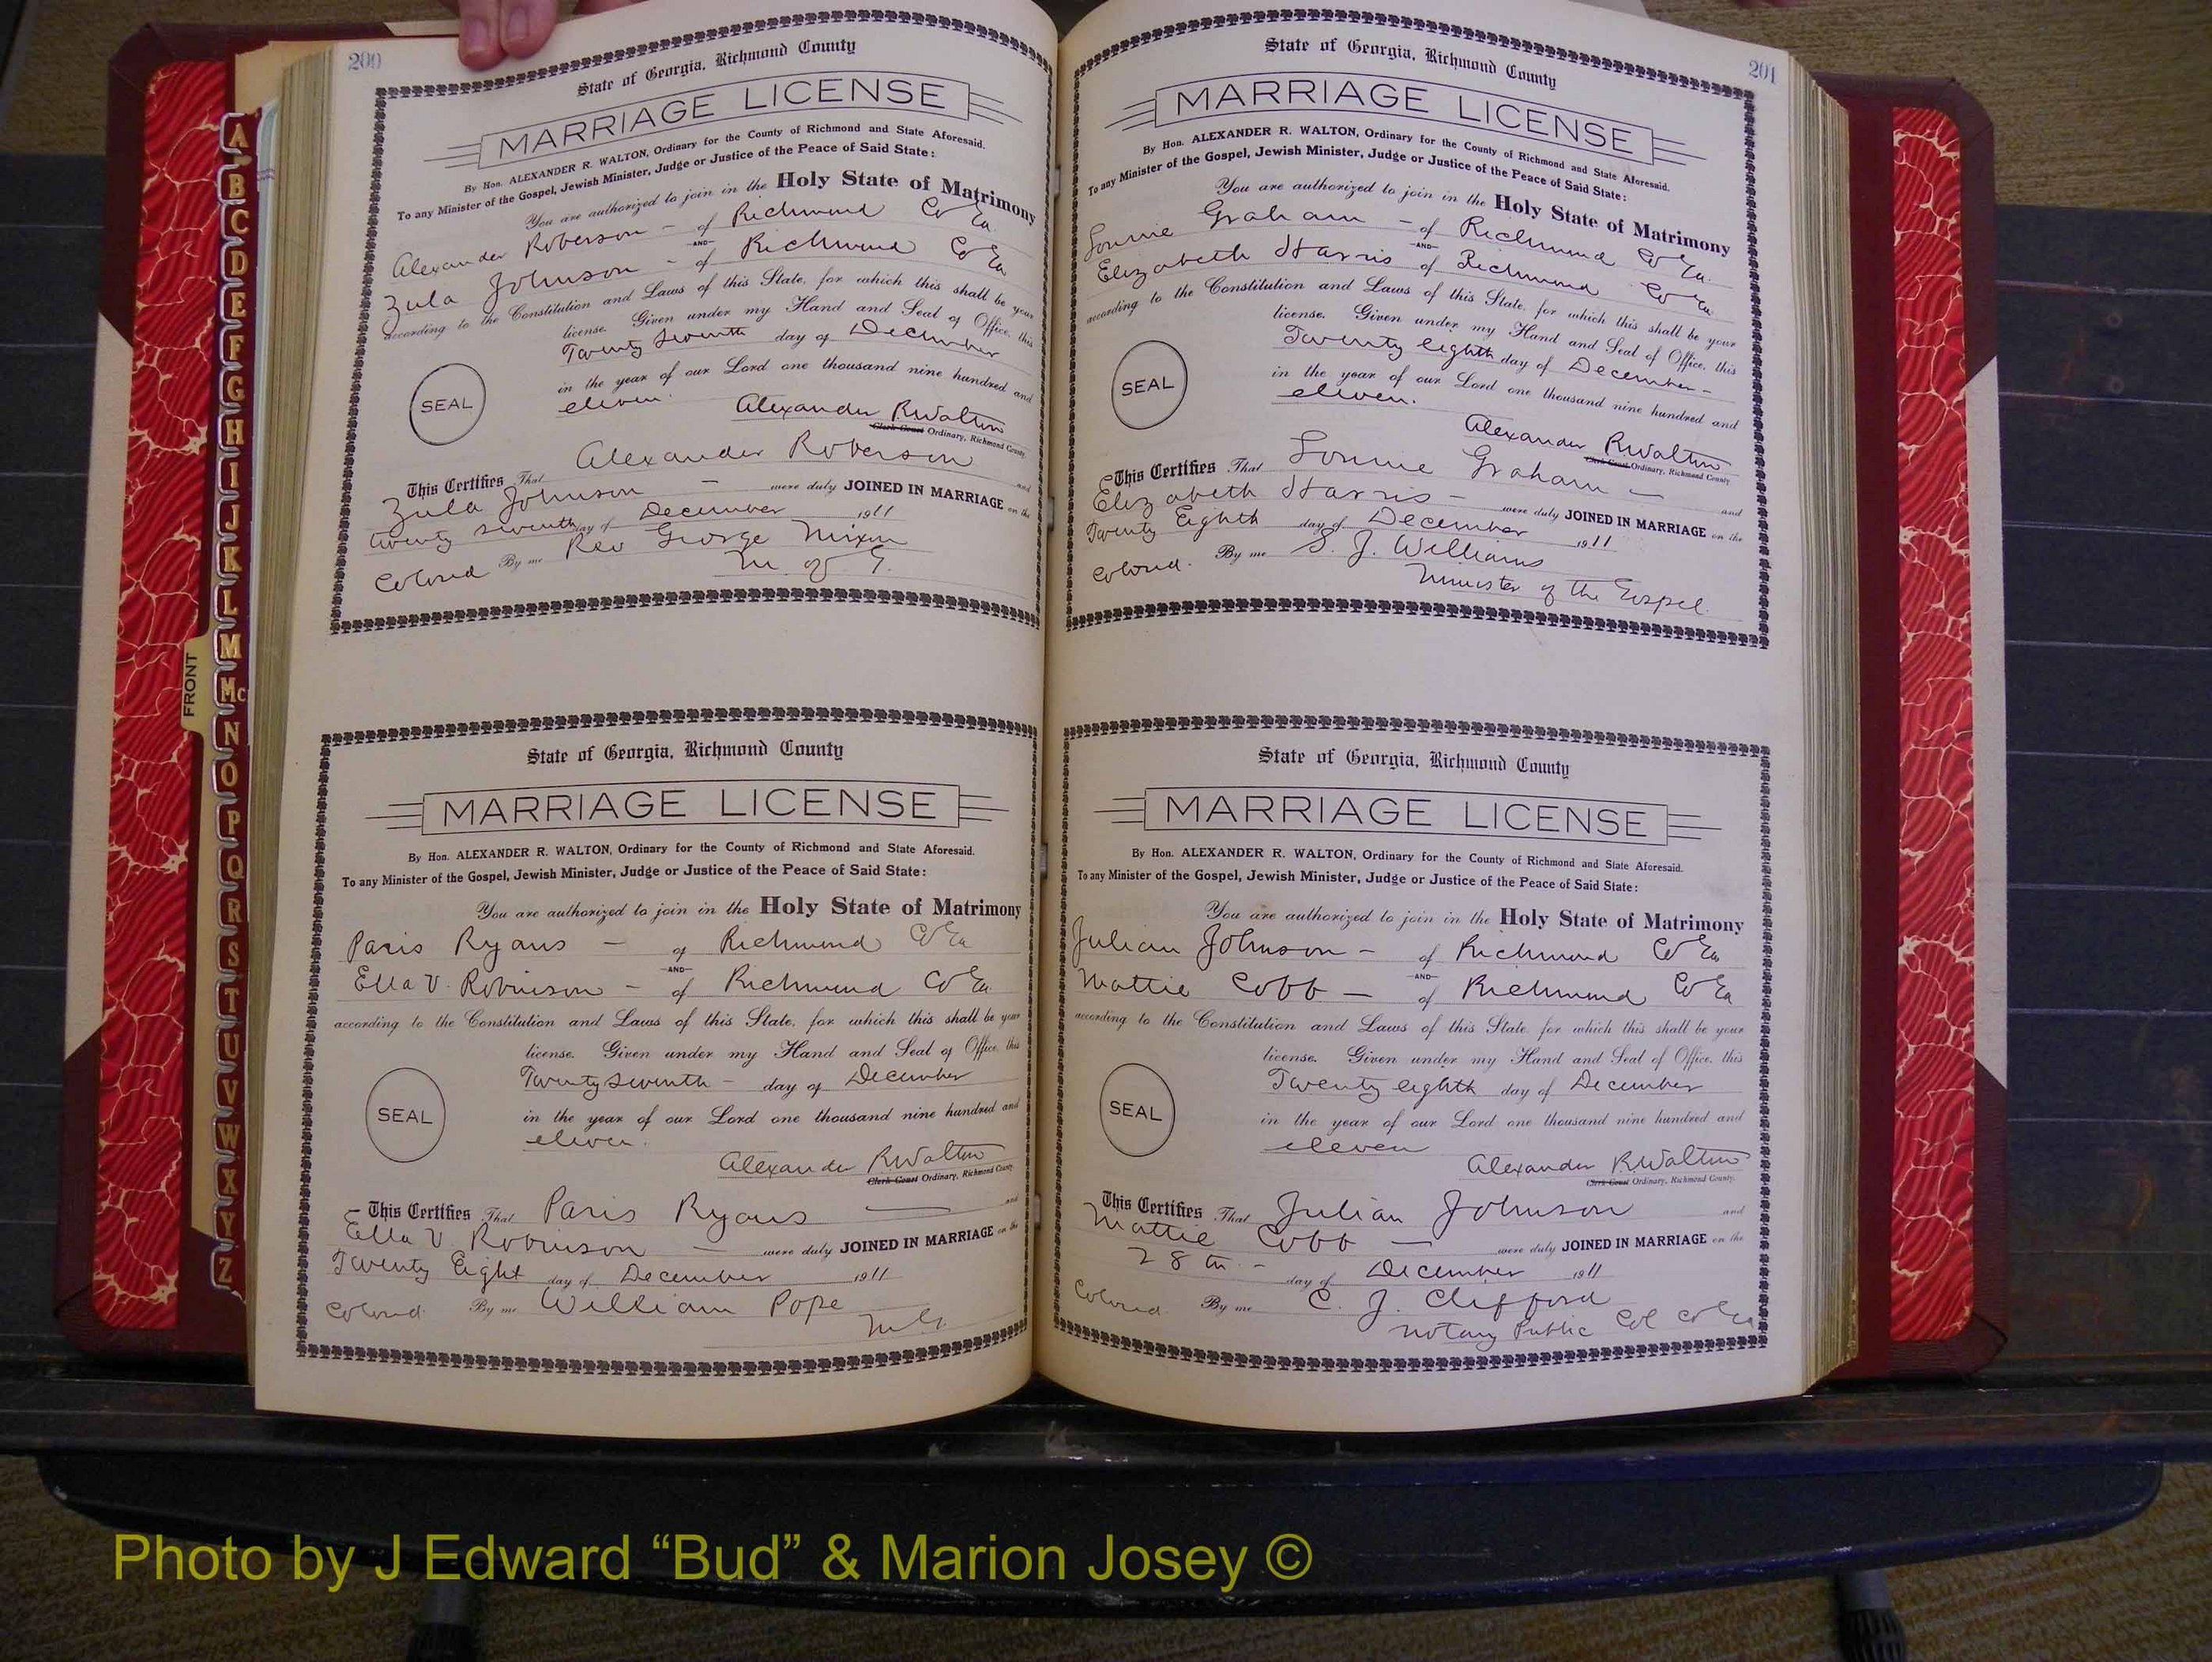 200
State of Georgia, Richmond County
MARRIAGE LICENSE
By Hon. ALEXANDER R. WALTON, Ordinary for the County of Richmond and State Aforesaid.
To any Minister of the Gospel, Jewish Minister, Judge or Justice of the Peace of Said State:
You are authorized to join in the Holy State of Matrimony
Alexander Roberson - of Richmond Co Ga
AND
Zula Johnson - of Richmond Co Ga
according to the Constitution and Laws of this State, for which this shall be your
license. Given under my Hand and Seal of Office, this
Twenty Seventh day of December
in the year of our Lord one thousand nine hundred and
eleven.
SEAL
Alexander R Walton
Clerk Court Ordinary, Richmond County.
This Certifies That Alexander Roberson and
Zula Johnson - were duly JOINED IN MARRIAGE on the
twenty seventh day of December 1911
Colored By me Rev George Nixon
M. of G.
State of Georgia, Richmond County
MARRIAGE LICENSE
By Hon. ALEXANDER R. WALTON, Ordinary for the County of Richmond and State Aforesaid.
To any Minister of the Gospel, Jewish Minister, Judge or Justice of the Peace of Said State:
You are authorized to join in the Holy State of Matrimony
Paris Ryans - of Richmond Co Ga
AND
Ella V. Robinson - of Richmond Co Ga
according to the Constitution and Laws of this State, for which this shall be your
license. Given under my Hand and Seal of Office, this
Twenty Seventh - day of December
in the year of our Lord one thousand nine hundred and
eleven.
SEAL
Alexander R Walton
Clerk Court Ordinary, Richmond County
This Certifies That Paris Ryans and
Ella V. Robinson - were duly JOINED IN MARRIAGE on the
Twenty Eight day of December 1911
Colored. By me William Pope
M G.
201
State of Georgia, Richmond County
MARRIAGE LICENSE
By Hon. ALEXANDER R. WALTON, Ordinary for the County of Richmond and State Aforesaid.
To any Minister of the Gospel, Jewish Minister, Judge or Justice of the Peace of Said State:
You are authorized to join in the Holy State of Matrimony
Lonnie Graham - of Richmond Co Ga.
AND
Elizabeth Harris of Richmond Co Ga
according to the Constitution and Laws of this State, for which this shall be your
license. Given under my Hand and Seal of Office, this
Twenty eighth day of December -
in the year of our Lord one thousand nine hundred and
eleven.
SEAL
Alexander R Walton
Clerk Court Ordinary, Richmond County
This Certifies That Lonnie Graham - and
Elizabeth Harris - were duly JOINED IN MARRIAGE on the
Twenty Eighth day of December 1911
Colored. By me S. J. Williams
Minister of the Gospel.
State of Georgia, Richmond County
MARRIAGE LICENSE
By Hon. ALEXANDER R. WALTON, Ordinary for the County of Richmond and State Aforesaid.
To any Minister of the Gospel, Jewish Minister, Judge or Justice of the Peace of Said State:
You are authorized to join in the Holy State of Matrimony
Julian Johnson - of Richmond Co Ga
AND
Mattie Cobb - of Richmond Co Ga
according to the Constitution and Laws of this State, for which this shall be your
license. Given under my Hand and Seal of Office, this
Twenty eighth day of December
in the year of our Lord one thousand nine hundred and
eleven
SEAL
Alexander R Walton
Clerk Court Ordinary, Richmond County.
This Certifies That Julian Johnson and
Mattie Cobb - were duly JOINED IN MARRIAGE on the
28th - day of December 1911
Colored. By me C. J. Clifford
Notary Public Col Co Ga
FRONT
A
B
C
D
E
F
G
H
I
J
K
L
M
Mc
N
O
P
Q
R
S
T
U
V
W
X
Y
Z
Photo by J Edward “Bud” & Marion Josey ©